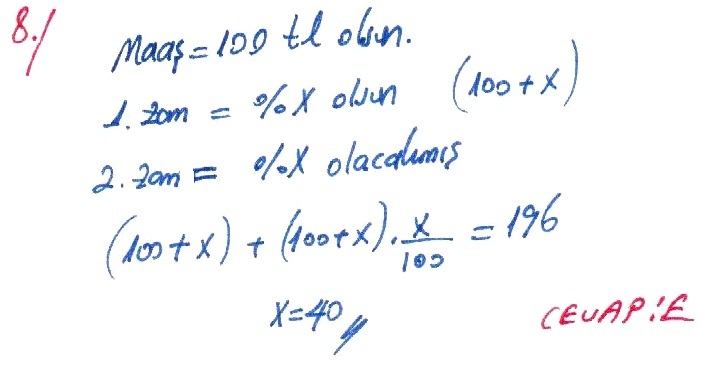 8./ Maaş = 100 tl olsun.
1. zam = %X olsun (100+X)
2. zam = %X olacakmış
(100+X) + (100+X) . X/100 = 196
X=40//
CEVAP:E